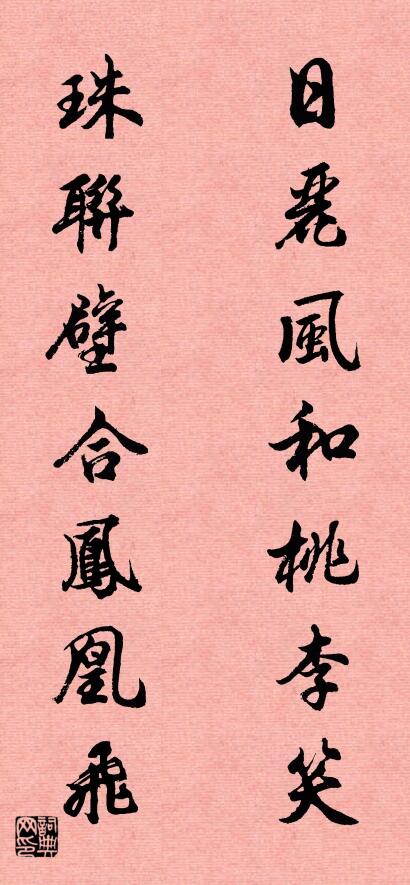 日麗風和桃李笑
珠聯璧合鳳凰飛
詞典网印